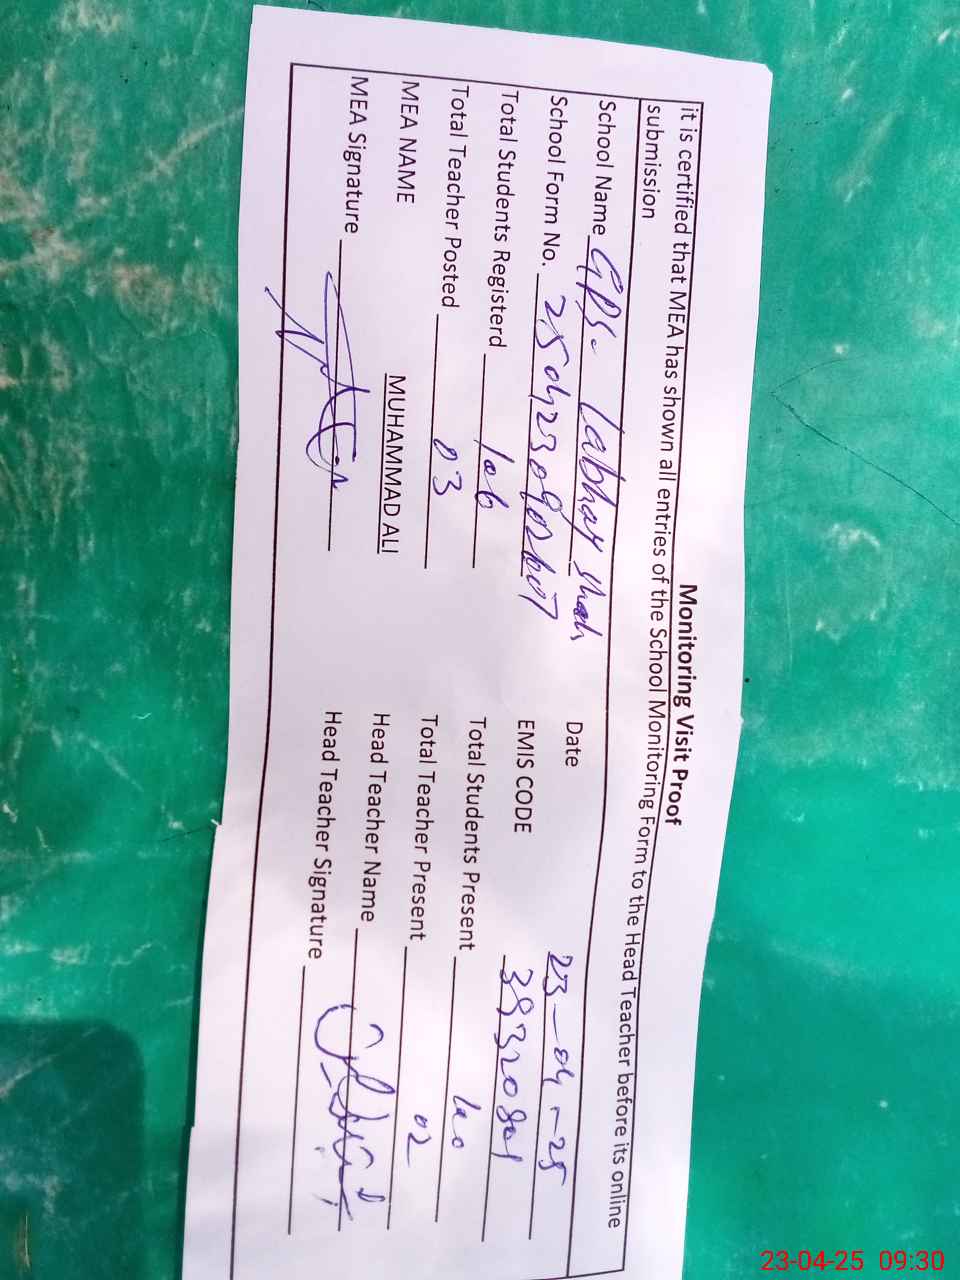 Monitoring Visit Proof
it is certified that MEA has shown all entries of the School Monitoring Form to the Head Teacher before its online
submission
School Name GPS. Labhay Shah
Date 23-04-25
School Form No.
EMIS CODE
Total Students Registerd 106
Total Students Present 100
Total Teacher Posted 03
Total Teacher Present 02
MEA NAME MUHAMMAD ALI
Head Teacher Name
MEA Signature
Head Teacher Signature
23-04-25 09:30